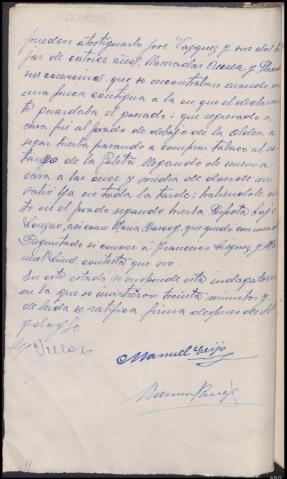 pueden atestiguarlo José Vazquez y sus dos hi
jas de catorce años, llamadas y
sus convecinos, que se encontraban arando en
una finca contigua a la en que el declaran
te guardaba el ganado; que regresado a
casa fue al prado de debajo de la aldea a
segar hierba pasando a comprar tabaco al es
tanco de la llegando de nuevo a
casa a las once y media de donde no
salió ya en toda la tarde; habiéndole vis
to en el prado segando hierba Pepota
así como María que quedó con
Preguntado si conoce á Francisco y Ma
nuel contesta que no.
En este estado se suspende esta indagatoria
en la que se invirtieron treinta minutos y
leida se ratifica firma despues de S.
doy fe
Villar
Manuel Seijo
Ramon